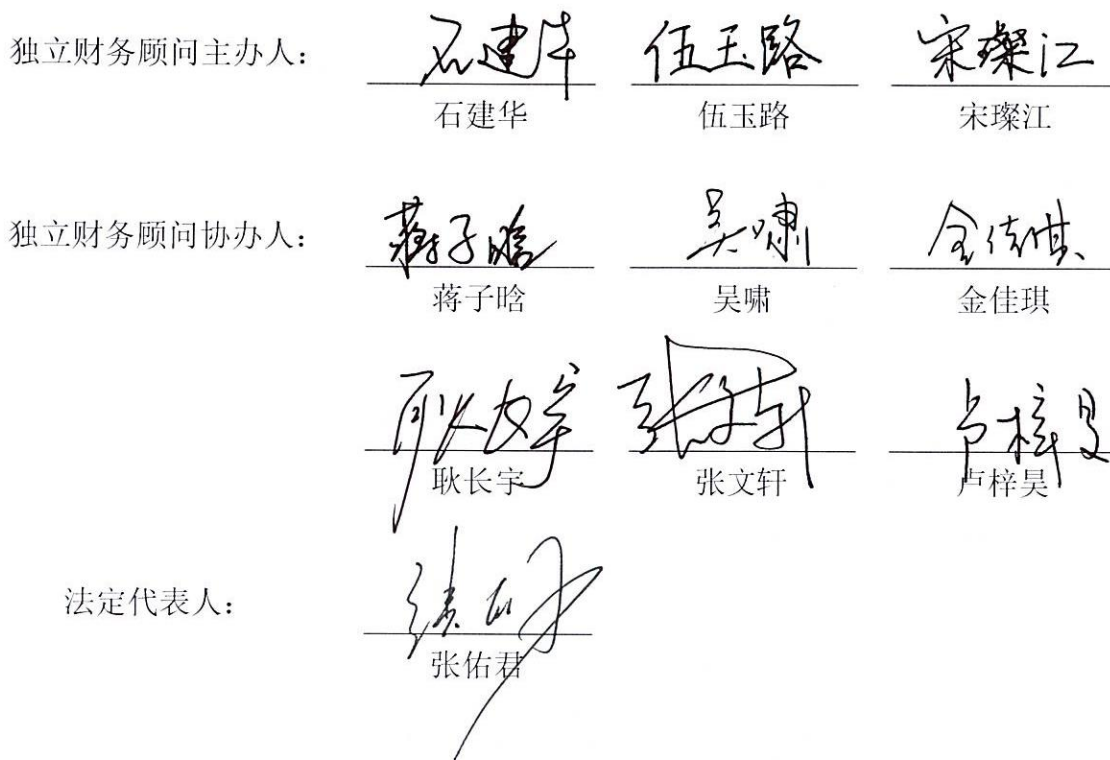 独立财务顾问主办人：
石建华 伍玉路 宋璨江
石建华 伍玉路 宋璨江
独立财务顾问协办人：
蒋子晗 吴啸 金佳琪
蒋子晗 吴啸 金佳琪
耿长宇 张文轩 卢梓昊
耿长宇 张文轩 卢梓昊
法定代表人：
张佑君
张佑君